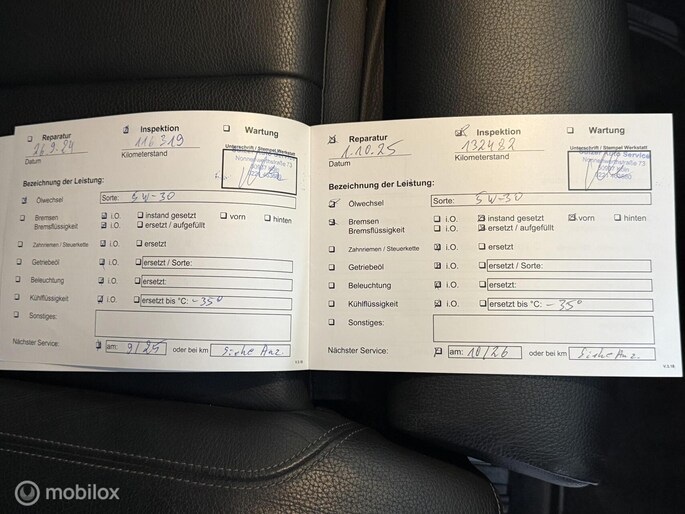 Reparatur Inspektion Wartung
26.9.24 116319
Datum Kilometerstand
Unterschrift / Stempel Werkstatt
Bezeichnung der Leistung:
Ölwechsel Sorte: 5W-30
Bremsen i.O. instand gesetzt vorn hinten
Bremsflüssigkeit i.O. ersetzt / aufgefüllt
Zahnriemen / Steuerkette i.O. ersetzt
Getriebeöl i.O. ersetzt / Sorte:
Beleuchtung i.O. ersetzt:
Kühlflüssigkeit i.O. ersetzt bis °C: -35°
Sonstiges:
Nächster Service: am: 9/25 oder bei km Siehe Anz.
V.3.18
Reparatur Inspektion Wartung
1.10.25 132482
Datum Kilometerstand
Unterschrift / Stempel Werkstatt
Auto Service
Bezeichnung der Leistung:
Ölwechsel Sorte: 5W-30
Bremsen i.O. instand gesetzt vorn hinten
Bremsflüssigkeit i.O. ersetzt / aufgefüllt
Zahnriemen / Steuerkette i.O. ersetzt
Getriebeöl i.O. ersetzt / Sorte:
Beleuchtung i.O. ersetzt:
Kühlflüssigkeit i.O. ersetzt bis °C: -35°
Sonstiges:
Nächster Service: am: 10/26 oder bei km Siehe Anz.
V.3.18
mobilox